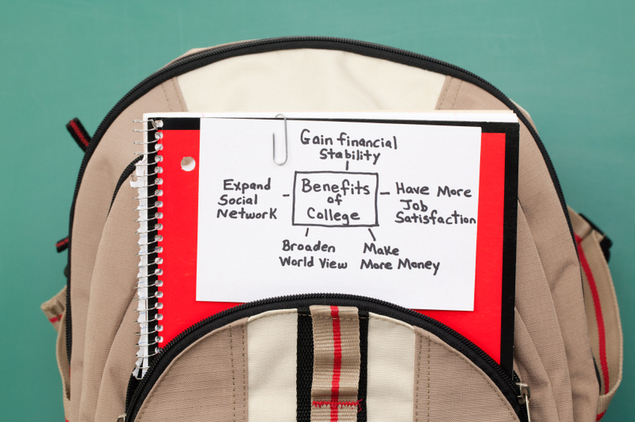 Gain financial
Stability
Expand
Social
Network
Benefits
of
College
Have More
Job
Satisfaction
Broaden
World View
Make
More Money